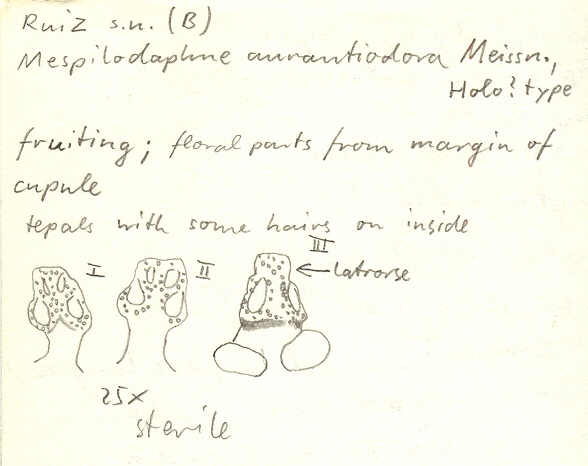 Ruiz s.n. (B)
Mespilodaphne aurantiodora Meissn.,
Holo? type
fruiting; floral parts from margin of
cupule
tepals with some hairs on inside
III
I II ← latrorse
25x
sterile